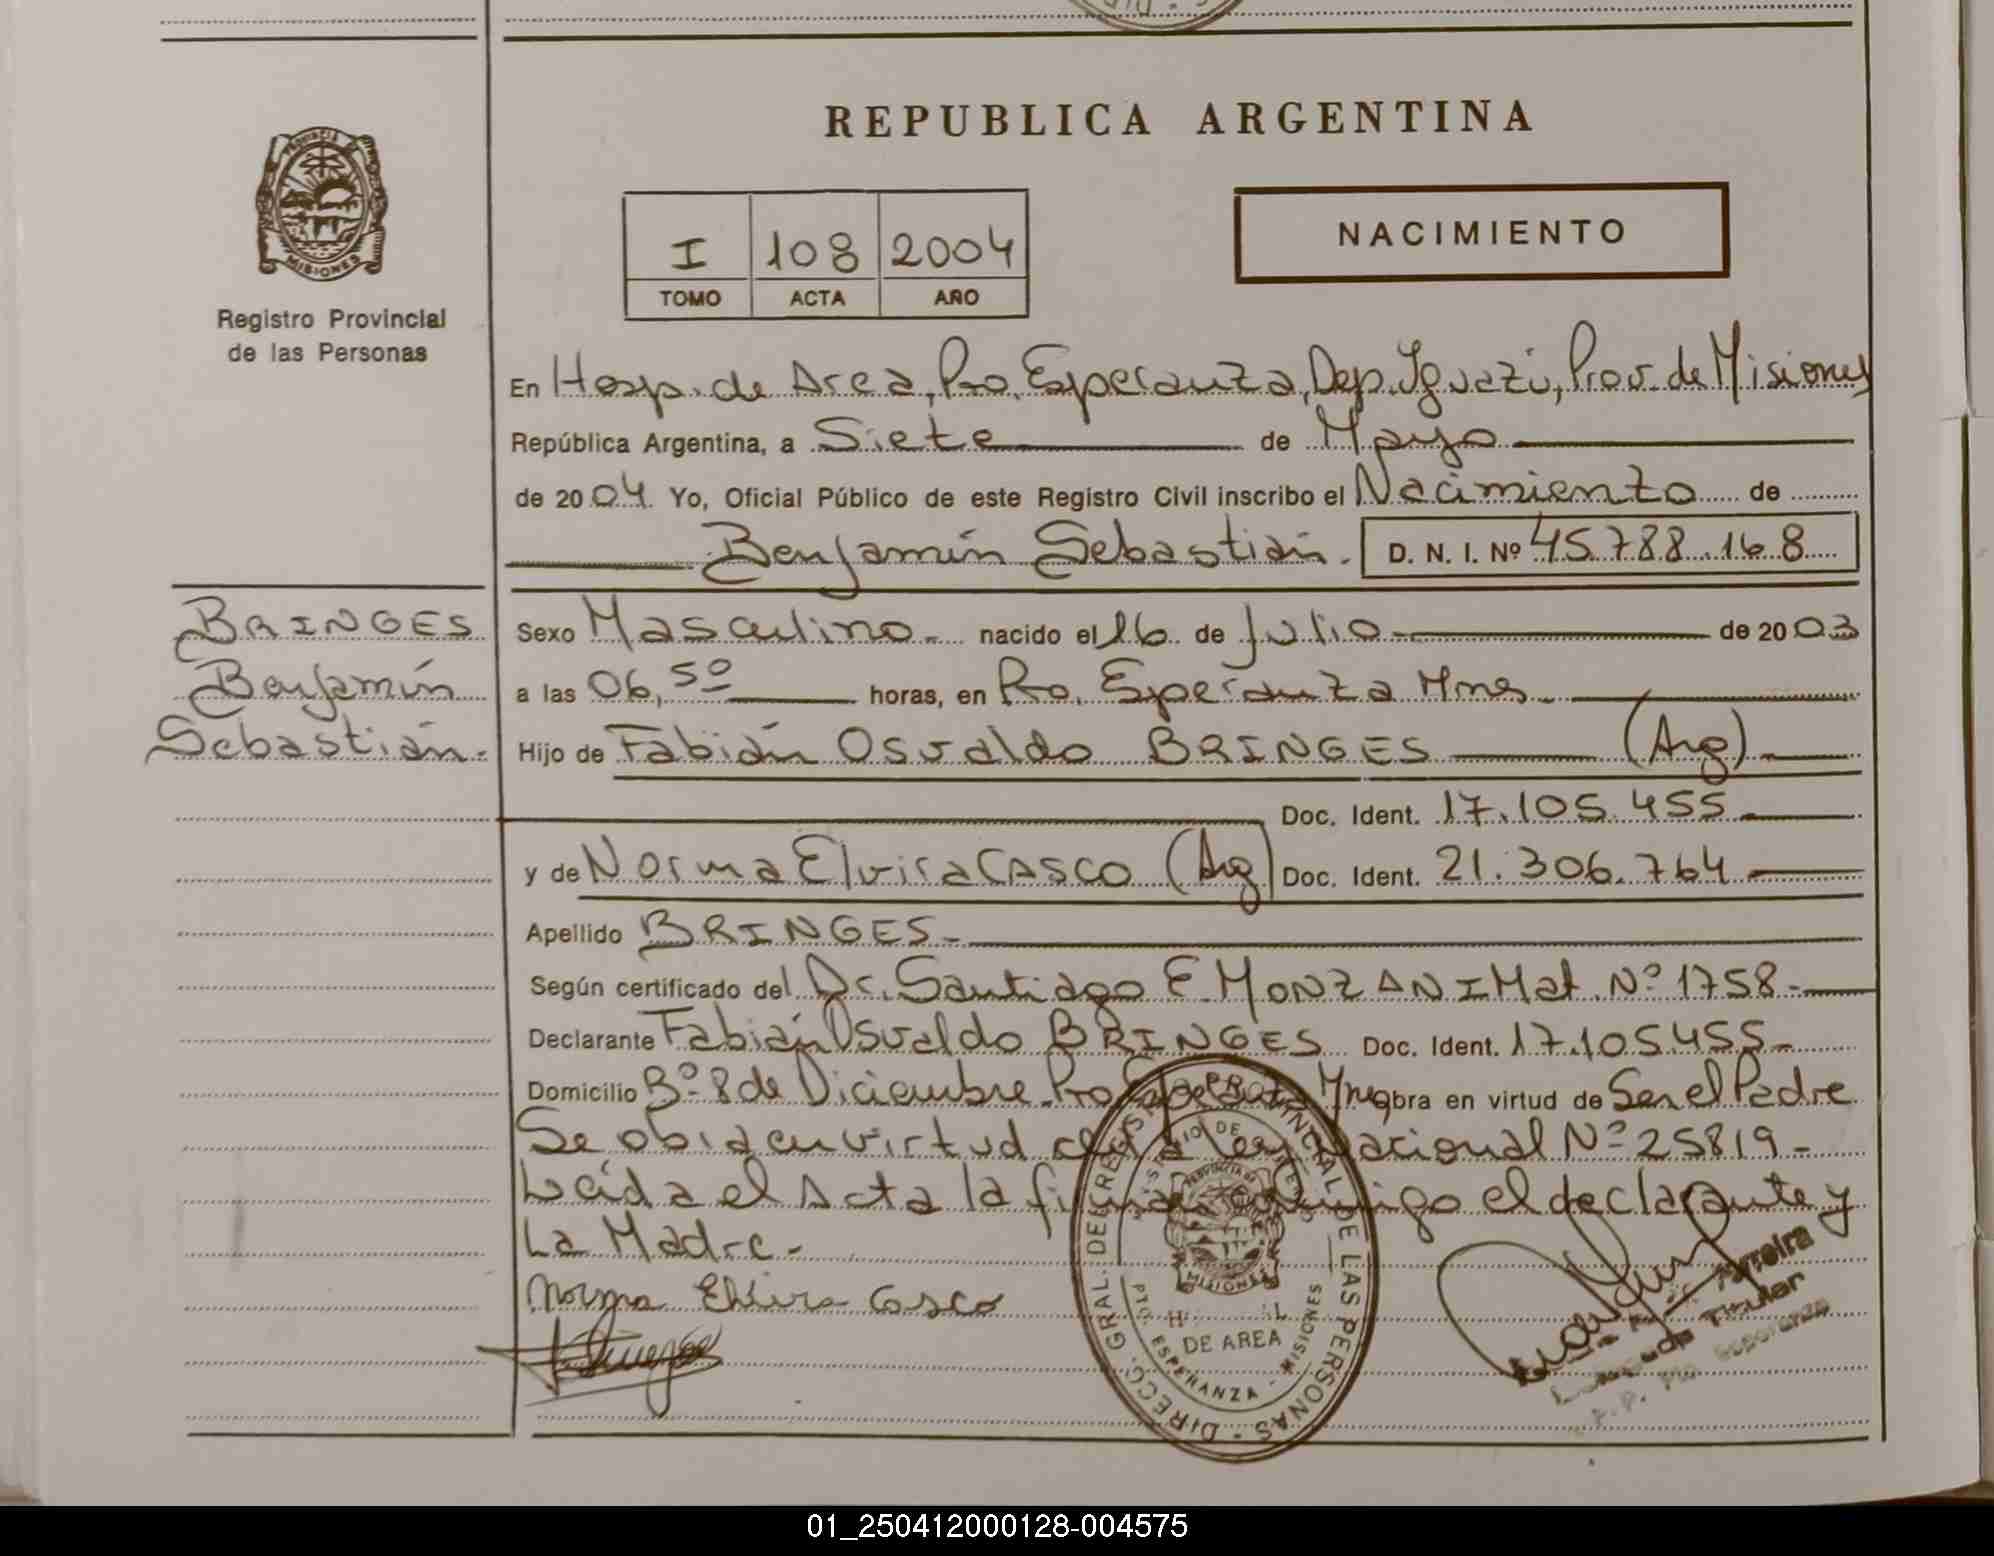 REPUBLICA ARGENTINA
PROVINCIA DE
MISIONES
Registro Provincial
de las Personas
I 108 2004
TOMO ACTA AÑO
NACIMIENTO
En Hosp. de Area, Pto. Esperanza, Dep. Iguazú, Prov. de Misiones
República Argentina, a Siete de Mayo
de 2004 Yo, Oficial Público de este Registro Civil inscribo el Nacimiento de
Benjamín Sebastián. D. N. I. Nº 45.788.168
BRINGES
Benjamín
Sebastián.-
Sexo Masculino.- nacido el 16 de Julio de 2003
a las 06,50 horas, en Pto. Esperanza Mnes
Hijo de Fabián Osvaldo BRINGES (Arg)
Doc. Ident. 17.105.455
y de Norma Elvira CASCO (Arg) Doc. Ident. 21.306.764
Apellido BRINGES.-
Según certificado del Dr. Santiago E. MONZANI Mat. Nº 1758.-
Declarante Fabián Osvaldo BRINGES Doc. Ident. 17.105.455.-
Domicilio Bº 8 de Diciembre Pto Esperanza Mnes obra en virtud de Ser el Padre
Se obra en virtud de la Ley Nacional Nº 25819.-
Leída el Acta la firman conmigo el declarante y
La Madre.-
Norma Elvira Casco
DIRECC. GRAL. DE REGISTRO PROVINCIAL DE LAS PERSONAS
MINISTERIO DE
PROVINCIA DE
MISIONES
DE AREA
PTO. ESPERANZA - MISIONES
Ferreira
Titular
Pto Esperanza
01_250412000128-004575